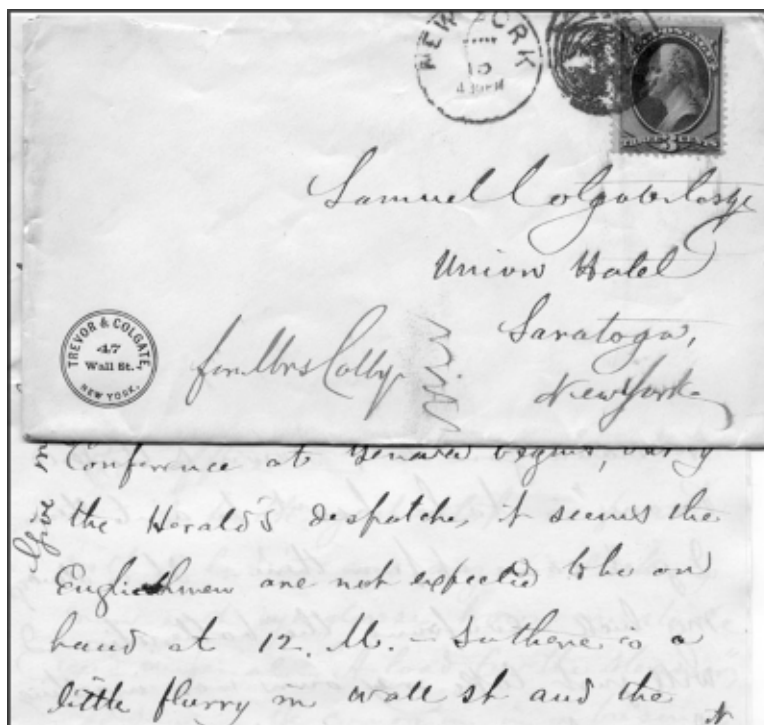 NEW YORK
10
430PM
U.S. POSTAGE
THREE 3 CENTS
Samuel Colgate Esqr
Union Hotel
Saratoga,
New York
TREVOR & COLGATE,
47
Wall St.
NEW YORK.
for Mrs Colby
Conference at Geneva begins, but by
the Herald's despatche, it seems the
Englishmen are not expected to be on
hand at 12. M. - So there is a
little flurry in wall st and the